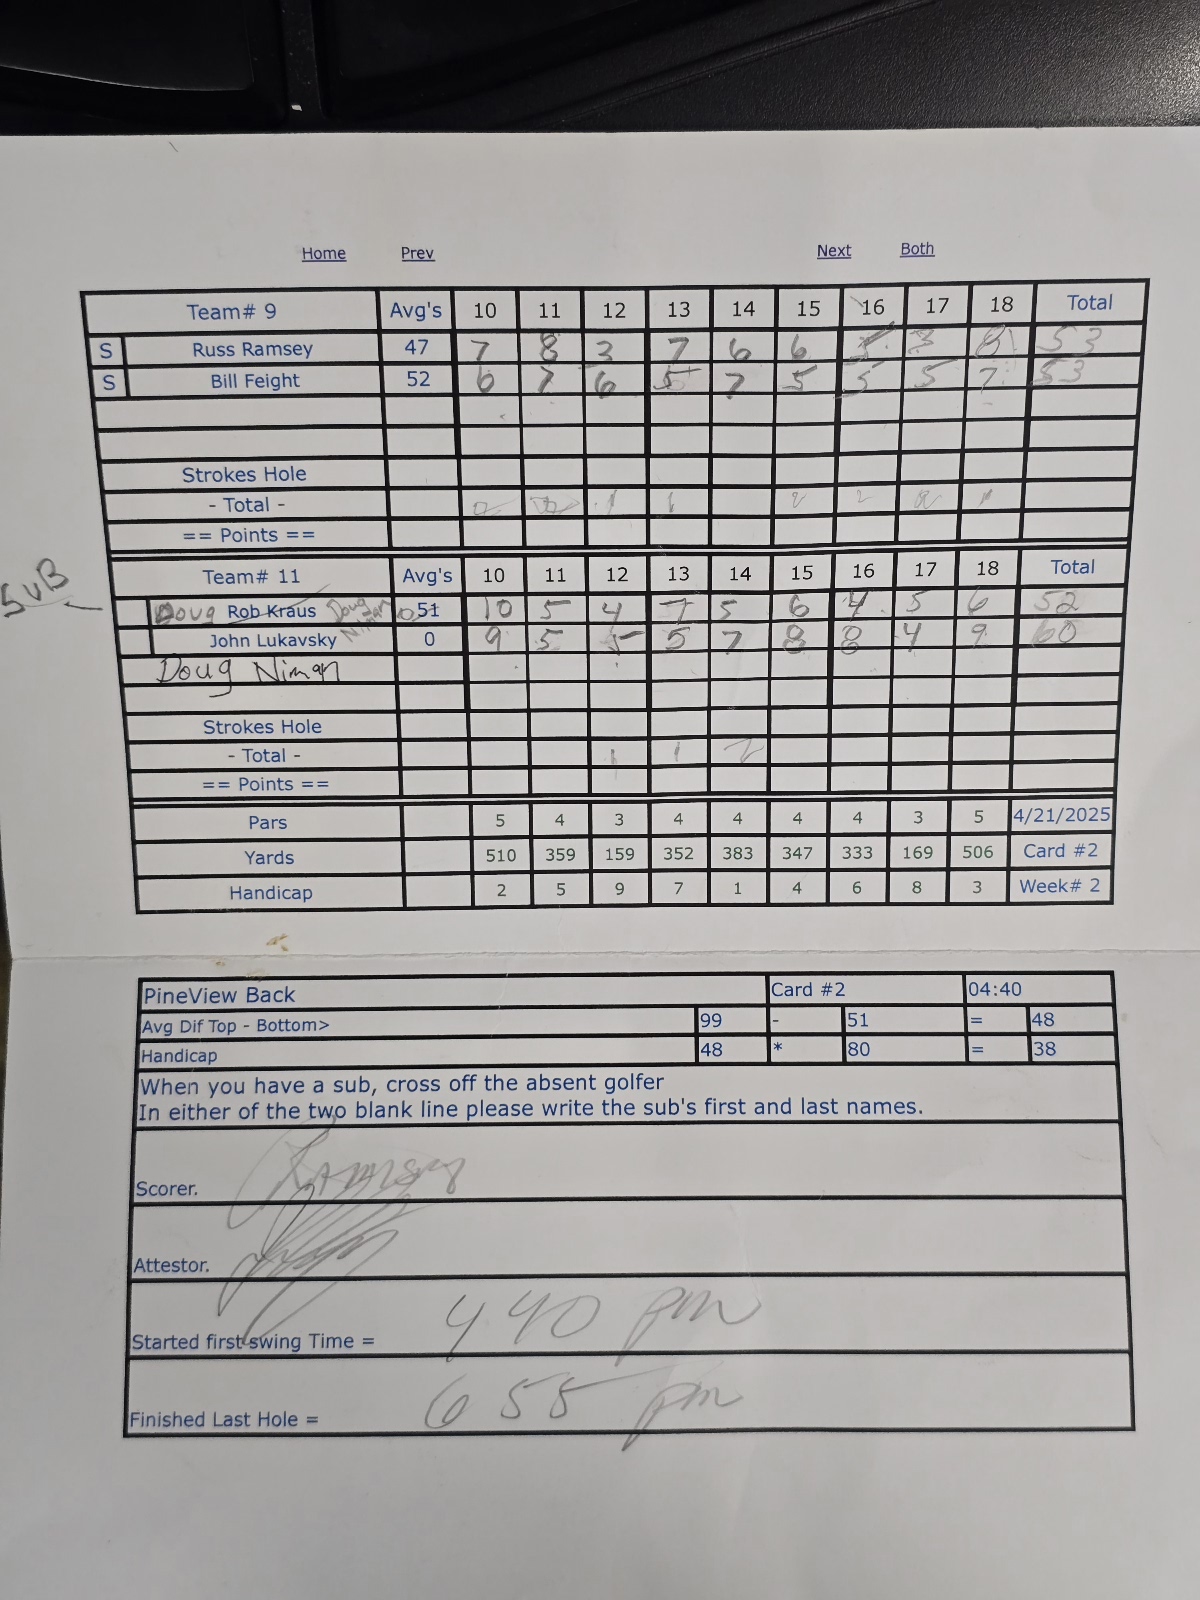 Home Prev Next Both
Team# 9 Avg's 10 11 12 13 14 15 16 17 18 Total
S Russ Ramsey 47 7 8 3 7 6 6 5 3 8 53
S Bill Feight 52 6 7 6 5 7 5 5 5 7 53
Strokes Hole
- Total - 1 1 2 2 1
== Points ==
SuB
Team# 11 Avg's 10 11 12 13 14 15 16 17 18 Total
Doug Rob Kraus Doug Niman 51 10 5 4 7 5 6 4 5 6 52
John Lukavsky 0 9 5 5 5 7 8 8 4 9 60
Doug Niman
Strokes Hole
- Total - 1 1 2
== Points ==
Pars 5 4 3 4 4 4 4 3 5 4/21/2025
Yards 510 359 159 352 383 347 333 169 506 Card #2
Handicap 2 5 9 7 1 4 6 8 3 Week# 2
PineView Back Card #2 04:40
Avg Dif Top - Bottom> 99 - 51 = 48
Handicap 48 * 80 = 38
When you have a sub, cross off the absent golfer
In either of the two blank line please write the sub's first and last names.
Scorer. Ramsey
Attestor.
Started first swing Time = 4 40 pm
Finished Last Hole = 6 55 pm